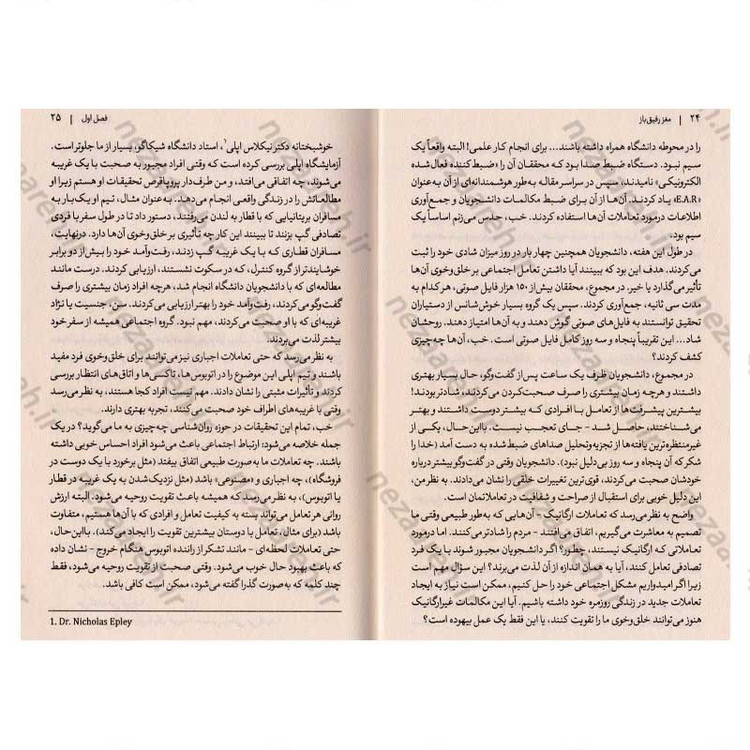 ۲۴ | مغز رفیق‌باز
را در محوطه دانشگاه همراه داشته باشند.... برای انجام کار علمی! البته واقعاً یک
سیم نبود. دستگاه ضبط صدا بود که محققان آن را «ضبط‌کننده فعال‌شده
الکترونیکی» نامیدند، سپس در سراسر مقاله به‌طور هوشمندانه‌ای از آن به‌عنوان
«E.A.R» یاد کردند. آن‌ها از آن برای ضبط مکالمات دانشجویان و جمع‌آوری
اطلاعات درمورد تعاملات آن‌ها استفاده کردند. خب، حدس می‌زنم اساساً یک
سیم بود.
در طول این هفته، دانشجویان همچنین چهار بار در روز میزان شادی خود را ثبت
می‌کردند. هدف این بود که ببینند آیا داشتن تعامل اجتماعی بر خلق‌وخوی آن‌ها
تأثیر می‌گذارد یا خیر. در مجموع، محققان بیش از ۱۵۰ هزار فایل صوتی، هرکدام به
مدت سی ثانیه، جمع‌آوری کردند. سپس یک گروه بسیار خوش‌شانس از دستیاران
تحقیق توانستند به فایل‌های صوتی گوش دهند و به آن‌ها امتیاز دهند. روحشان
شاد... این تقریباً پنجاه و سه روز کامل فایل صوتی است. خب، آن‌ها چه‌چیزی
کشف کردند؟
در مجموع، دانشجویان ظرف یک ساعت پس از گفت‌وگو، حال بسیار بهتری
داشتند و هرچه زمان بیشتری را صرف صحبت‌کردن می‌کردند، شادتر بودند!
بیشترین پیشرفت‌ها از تعامل با افرادی که بیشتر دوست داشتند و بهتر
می‌شناختند، حاصل شد - جای تعجب نیست. بااین‌حال، یکی از
غیرمنتظره‌ترین یافته‌ها از تجزیه‌وتحلیل صداهای ضبط‌شده به دست آمد (خدا را
شکر که آن پنجاه و سه روز بی‌دلیل نبود). دانشجویان وقتی در گفت‌وگو بیشتر درباره
خودشان صحبت می‌کردند، قوی‌ترین تغییرات خلقی را نشان دادند. به نظر من،
این دلیل خوبی برای استقبال از صراحت و شفافیت در تعاملاتمان است.
واضح به نظر می‌رسد که تعاملات ارگانیک - آن‌هایی که به‌طور طبیعی وقتی ما
تصمیم به معاشرت می‌گیریم، اتفاق می‌افتند - مردم را شادتر می‌کنند. اما درمورد
تعاملاتی که ارگانیک نیستند، چطور؟ اگر دانشجویان مجبور شوند با یک فرد
تصادفی تعامل کنند، آیا به همان اندازه از آن لذت می‌برند؟ این سؤال مهم است
زیرا اگر امیدواریم مشکل اجتماعی خود را حل کنیم، ممکن است نیاز به ایجاد
تعاملات جدید در زندگی روزمره خود داشته باشیم. آیا این مکالمات غیرارگانیک
هنوز می‌توانند خلق‌وخوی ما را تقویت کنند، یا این فقط یک عمل بیهوده است؟
فصل اول | ۲۵
خوشبختانه دکتر نیکلاس اپلی۱، استاد دانشگاه شیکاگو، بسیار از ما جلوتر است.
آزمایشگاه اپلی بررسی کرده است که وقتی افراد مجبور به صحبت با یک غریبه
می‌شوند، چه اتفاقی می‌افتد، و من طرف‌دار پروپاقرص تحقیقات او هستم زیرا او
مطالعاتش را در زندگی واقعی انجام می‌دهد. به‌عنوان مثال، تیم او یک بار به
مسافران بریتانیایی که با قطار به لندن می‌رفتند، دستور داد تا در طول سفر با فردی
تصادفی گپ بزنند تا ببینند این کار چه تأثیری بر خلق‌وخوی آن‌ها دارد. درنهایت،
مسافران قطاری که با یک غریبه گپ زدند، رفت‌وآمد خود را بیش از دو برابر
خوشایندتر از گروه کنترل، که در سکوت نشستند، ارزیابی کردند. درست مانند
مطالعه‌ای که با دانشجویان دانشگاه انجام شد، هرچه افراد زمان بیشتری را صرف
گفت‌وگو می‌کردند، رفت‌وآمد خود را بهتر ارزیابی می‌کردند. سن، جنسیت یا نژاد
غریبه‌ای که با او صحبت می‌کردند، مهم نبود. گروه اجتماعی همیشه از سفر خود
بیشتر لذت می‌بردند.
به نظر می‌رسد که حتی تعاملات اجباری نیز می‌توانند برای خلق‌وخوی فرد مفید
باشند و تیم اپلی این موضوع را در اتوبوس‌ها، تاکسی‌ها و اتاق‌های انتظار بررسی
کردند و تأثیرات مثبتی را نشان دادند. مهم نیست افراد کجا هستند، به نظر می‌رسد
وقتی با غریبه‌های اطراف خود صحبت می‌کنند، تجربه بهتری دارند.
خب، تمام این تحقیقات در حوزه روان‌شناسی چه‌چیزی به ما می‌گوید؟ در یک
جمله خلاصه می‌شود: ارتباط اجتماعی باعث می‌شود افراد احساس خوبی داشته
باشند. چه تعاملات ما به‌صورت طبیعی اتفاق بیفتد (مثل برخورد با یک دوست در
فروشگاه)، چه اجباری و «مصنوعی» باشد (مثل نزدیک‌شدن به یک غریبه در قطار
یا اتوبوس)، به نظر می‌رسد که همیشه باعث تقویت روحیه می‌شود. البته ارزش
روانی هر تعامل می‌تواند بسته به کیفیت تعامل و افرادی که با آن‌ها هستیم، متفاوت
باشد (برای مثال، تعامل با دوستان بیشترین تقویت را ایجاد می‌کند). بااین‌حال،
حتی تعاملات لحظه‌ای - مانند تشکر از راننده اتوبوس هنگام خروج - نشان داده
که باعث بهبود حال خوب می‌شود. وقتی صحبت از تقویت روحیه می‌شود، فقط
چند کلمه که به‌صورت گذرا گفته می‌شود، ممکن است کافی باشد.
1. Dr. Nicholas Epley
nezareh.ir